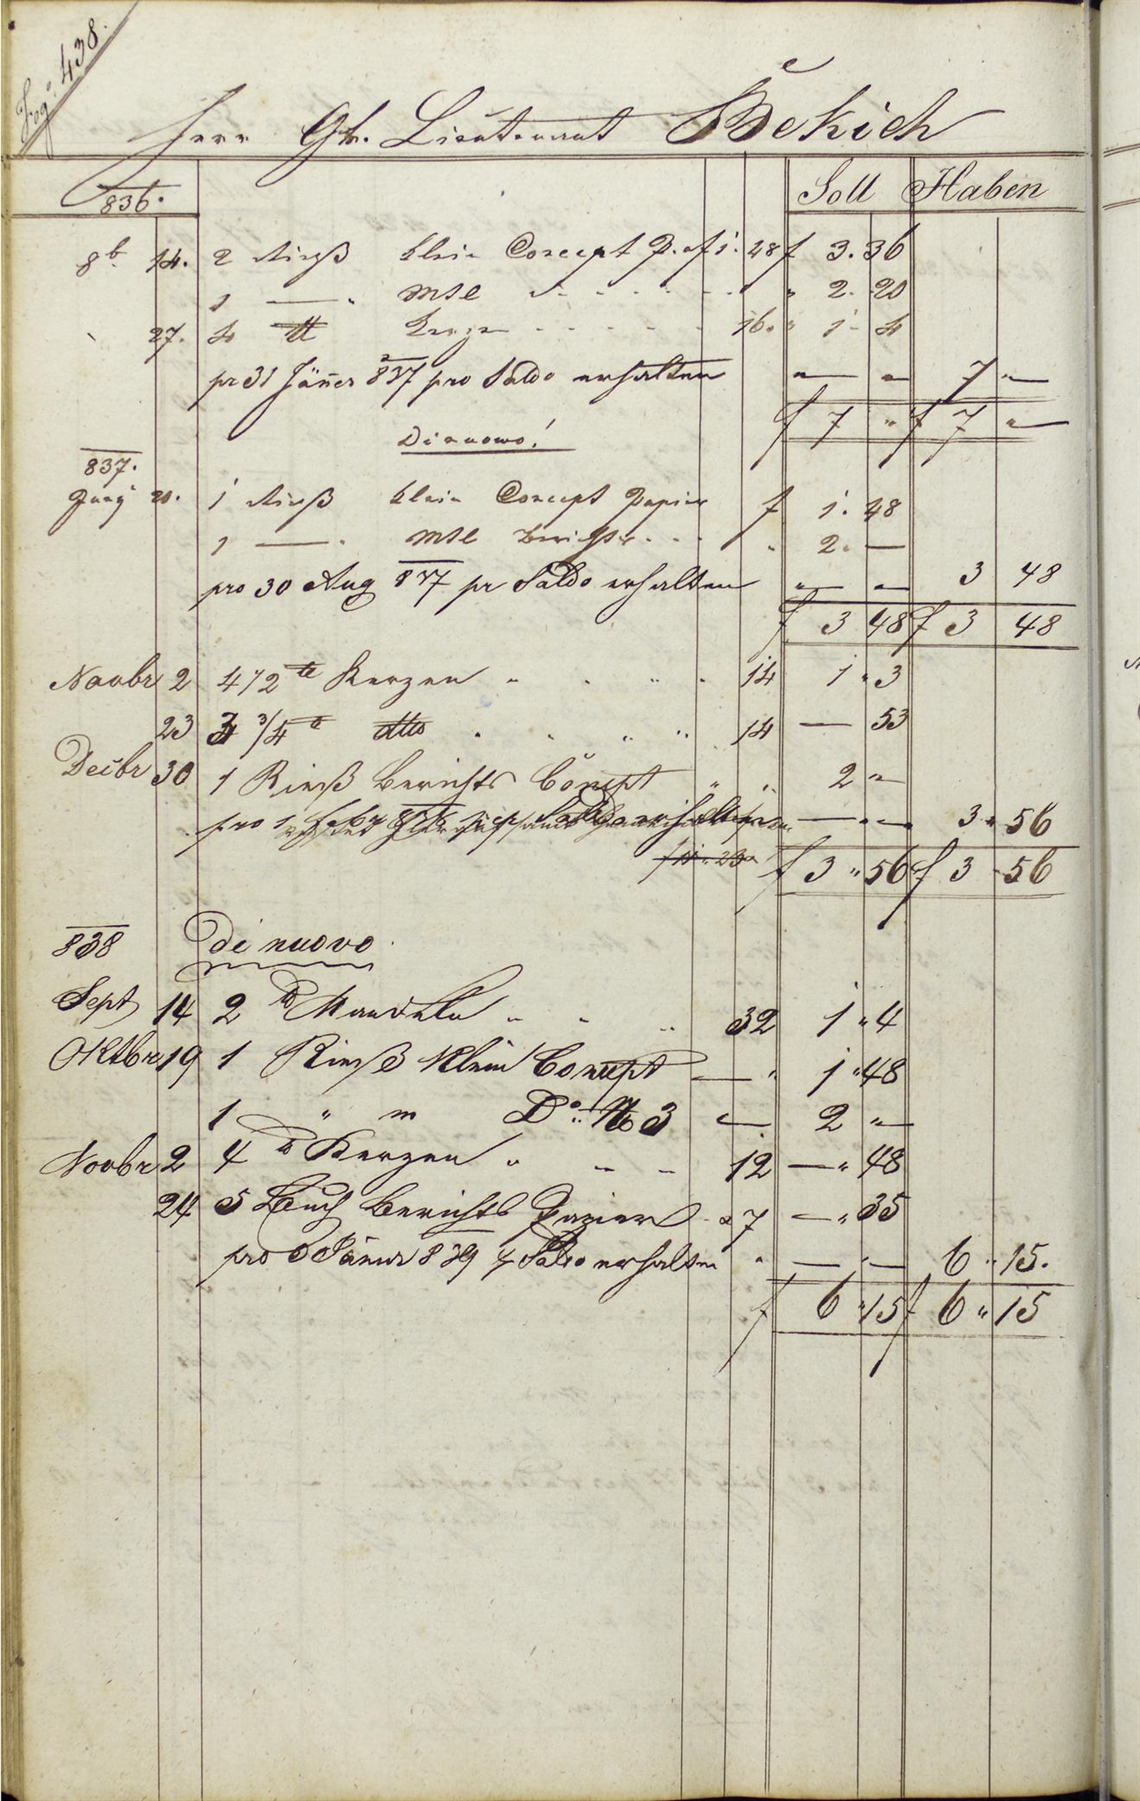 Fog: 438.
Herr Gr. Lieutenant Bekich
836. Soll Haben
8b. 14. 2 Rieß klein Concept P. a f 1. 48 f 3. 36
1 — " Mtl " 2. 20
27. 4 ℔ Kerzen 16. " 1 - 4
pr 31 Jäñer 837 pro Saldo erhalten — — 7 —
f 7 " f 7 "
Di nuovo!
837.
Juny 20. 1 Rieß klein Concept Papier f 1. 48
1 — " Mtl Berichts " 2. —
pro 30 Aug 837 pr Saldo erhalten " — — 3 48
f 3 48 f 3 48
Novbr 2 4 1/2 ℔ Kerzen " " " 14 1 " 3
23 3 3/4 ℔ dtto " " " 14 — 53
Decbr 30 1 Rieß Berichts Concept " " 2 "
pro 1 Saldo erhalten — " — 3 " 56
f 3 " 56 f 3 - 56
838 Di nuovo
Sept 14 2 ℔ Mandeln " " " 32 1 " 4
Oktbr 19 1 Rieß klein Concept — " 1 " 48
1 " m Do. № 3 — 2 " —
Novbr 2 4 ℔ Kerzen " " " 12 — " 48
24 5 Buch Berichts Papier a 7 — " 35
pro 6 Jäner 839 pr Saldo erhalten " — " — 6 " 15.
f 6 " 15 f 6 " 15